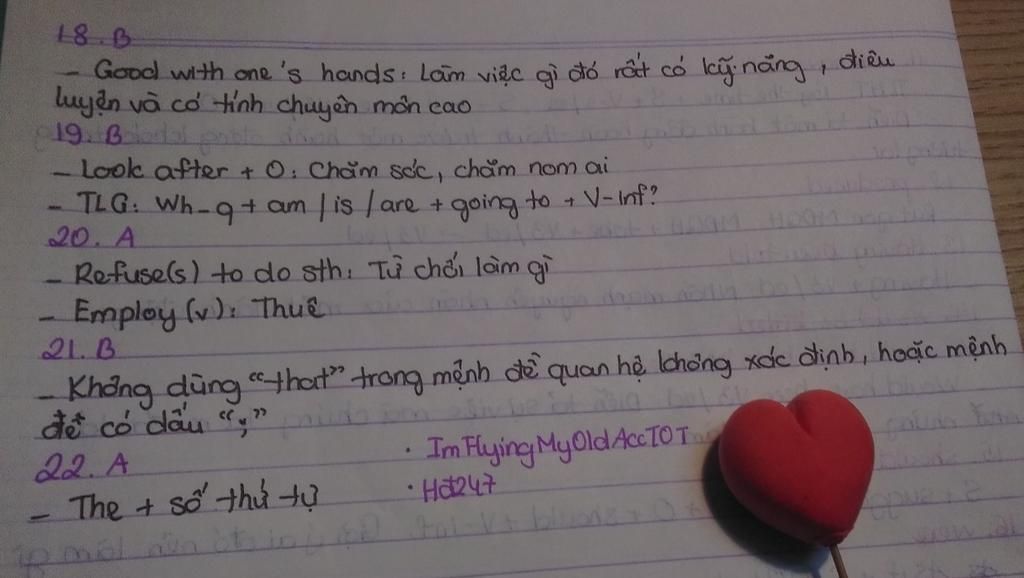 18. B
- Good with one's hands: Làm việc gì đó rất có kỹ năng, điêu
luyện và có tính chuyên môn cao
19. B
- Look after + O: Chăm sóc, chăm nom ai
- TLG: Wh-q + am / is / are + going to + V-inf?
20. A
- Refuse(s) to do sth: Từ chối làm gì
- Employ (v): Thuê
21. B
- Không dùng "that" trong mệnh đề quan hệ không xác định, hoặc mệnh
đề có dấu ";"
22. A
- The + số thứ tự
• ImFlyingMyOldAccTOT
• Hđ247